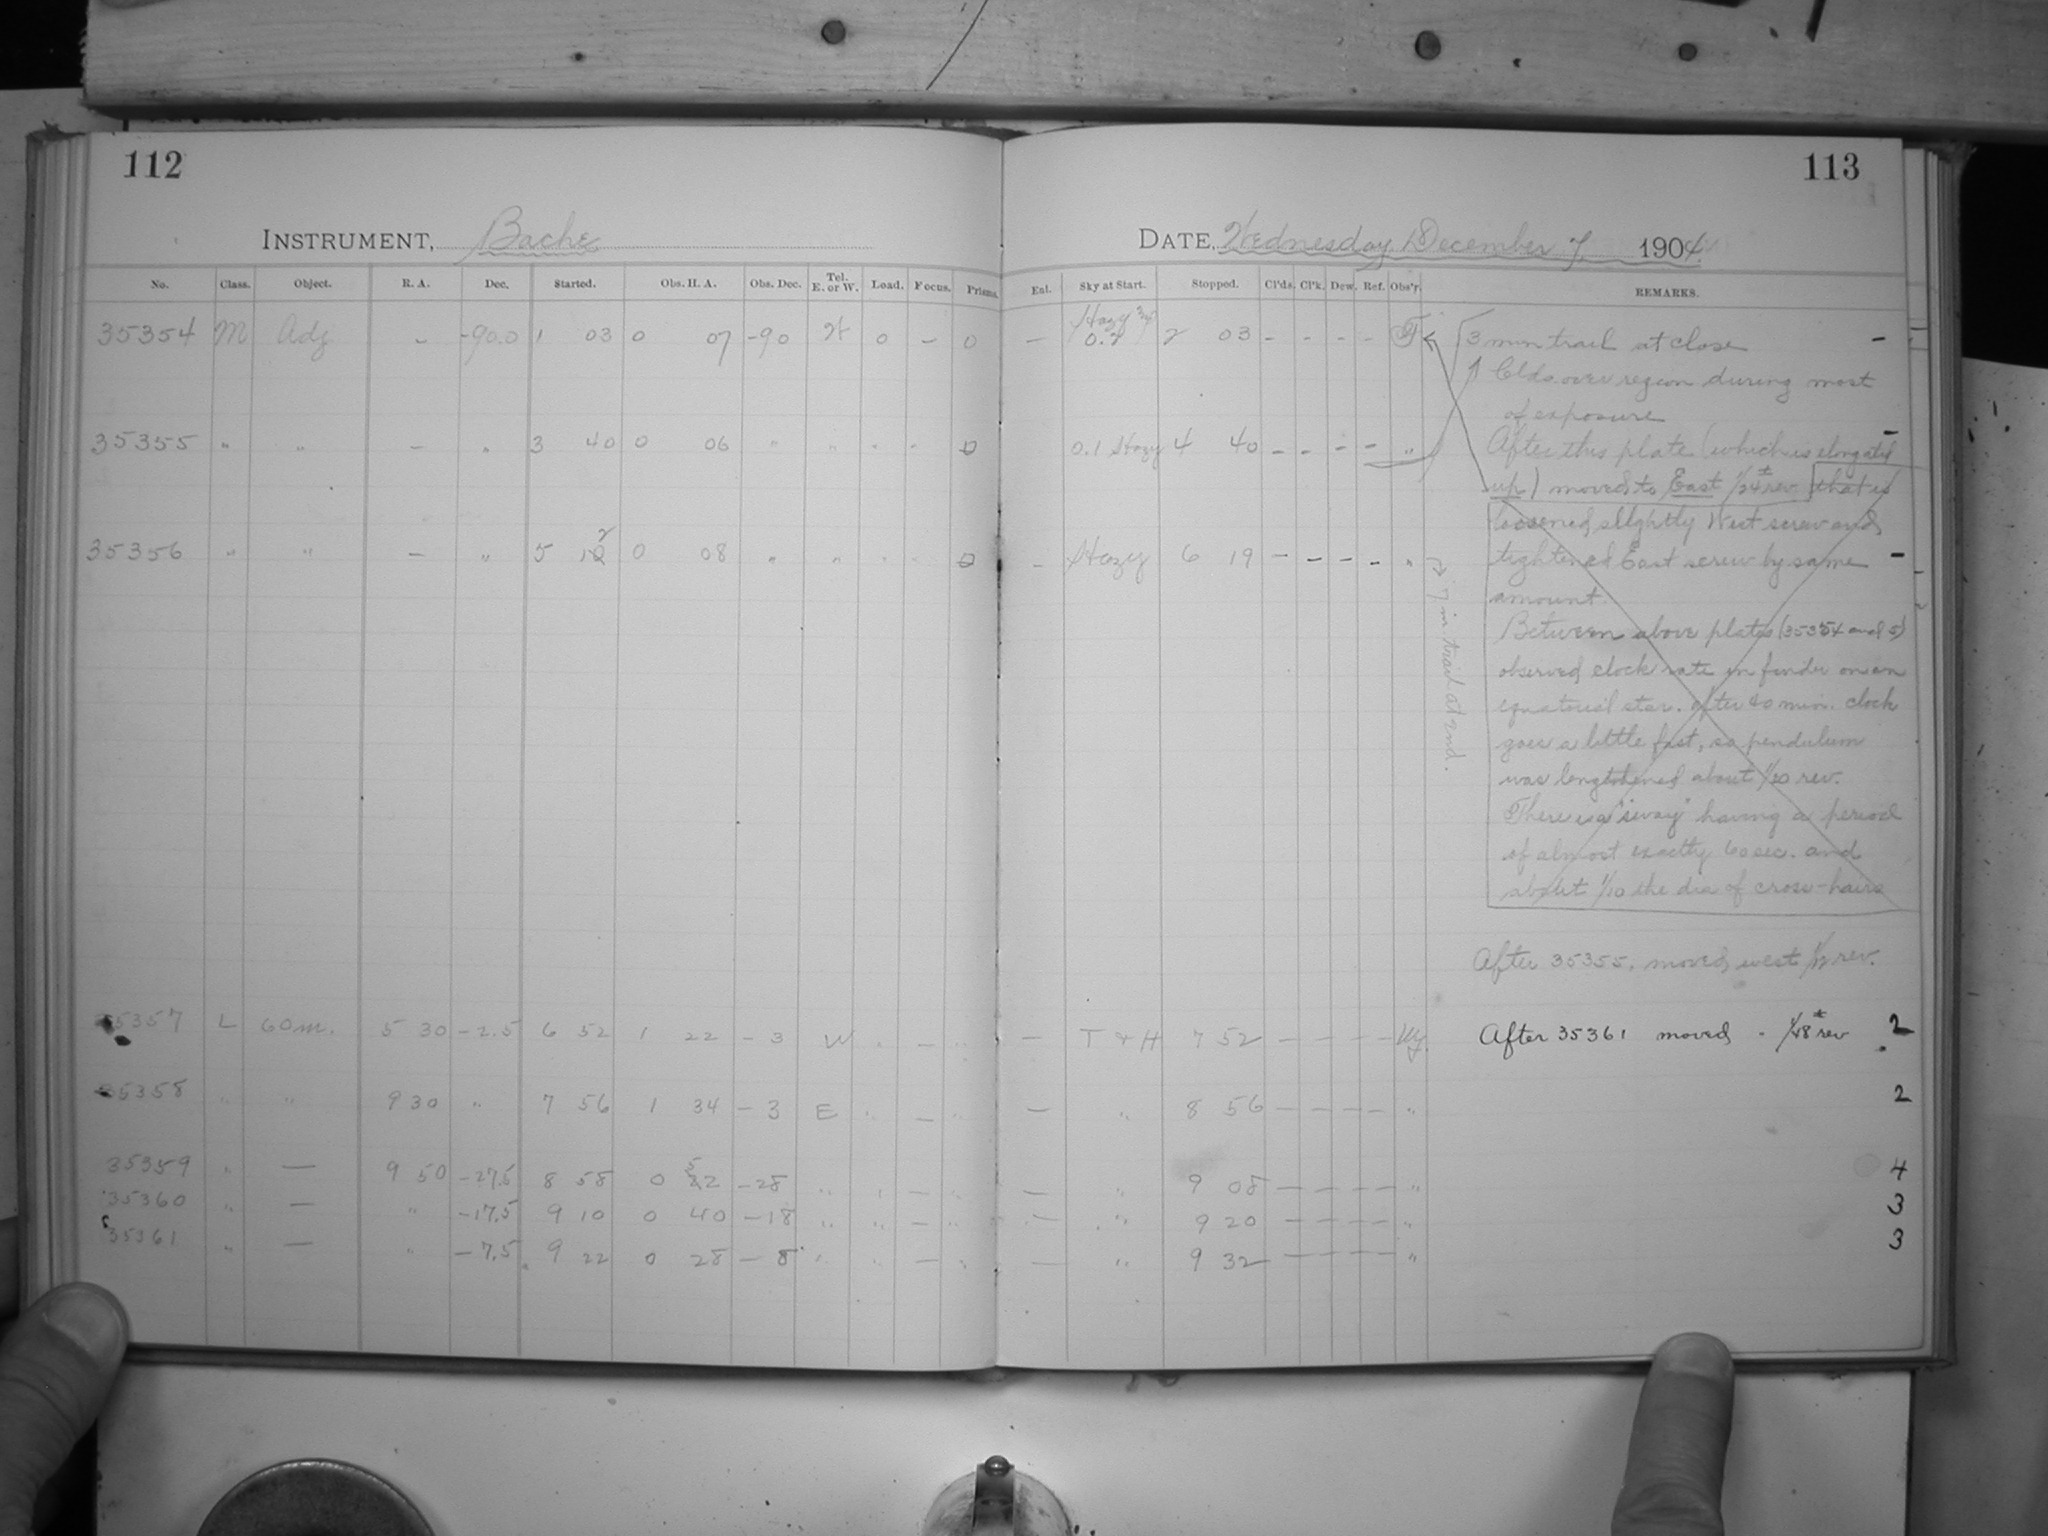 112
INSTRUMENT, Bache
No. Class. Object. R. A. Dec. Started. Obs. H. A. Obs. Dec. Tel. E. or W. Load. Focus. Prisms.
35354 M Adj - -90.0 1 03 0 07 -90 0 - 0
35355 " " - " 3 40 0 06 " " " - 0
35356 " " - " 5 12 0 08 " " " - 0
35357 L 60m. 5 30 -2.5 6 52 1 22 -3 W " - "
35358 " " 9 30 " 7 56 1 34 -3 E " - "
35359 " — 9 50 -27.5 8 58 0 52 -28 " " - "
35360 " — " -17.5 9 10 0 40 -18 " " - "
35361 " — " -7.5 9 22 0 28 -8 " " - "
113
DATE, Wednesday, December 7, 1904
Ent. Sky at Start. Stopped. Cl'ds. Cl'k. Dew. Ref. Obs'r. REMARKS.
— Hazy 2 03 - - - - 3 min trail at close -
Clds. over region during most
of exposure
0.1 Hazy 4 40 - - - - " After this plate (which is elongated -
up) moved to East 1/24± rev. that is
loosened slightly West screw and
- Hazy 6 19 - - - - " tightened East screw by same -
amount.
7 m trail at end.
Between above plates (35354 and 5)
observed clock rate in finder on an
equatorial star. After 40 min. clock
goes a little fast, so pendulum
was lengthened about 1/20 rev.
There is a "sway" having a period
of almost exactly 60 sec. and
about 1/10 the dia of cross-hairs
After 35355, moved west 1/12 rev.
— T & H 7 52 — — — — After 35361 moved - 1/48± rev 2
— " 8 56 — — — — " 2
— " 9 08 — — — — " 4
— " 9 20 — — — — " 3
— " 9 32 — — — — " 3